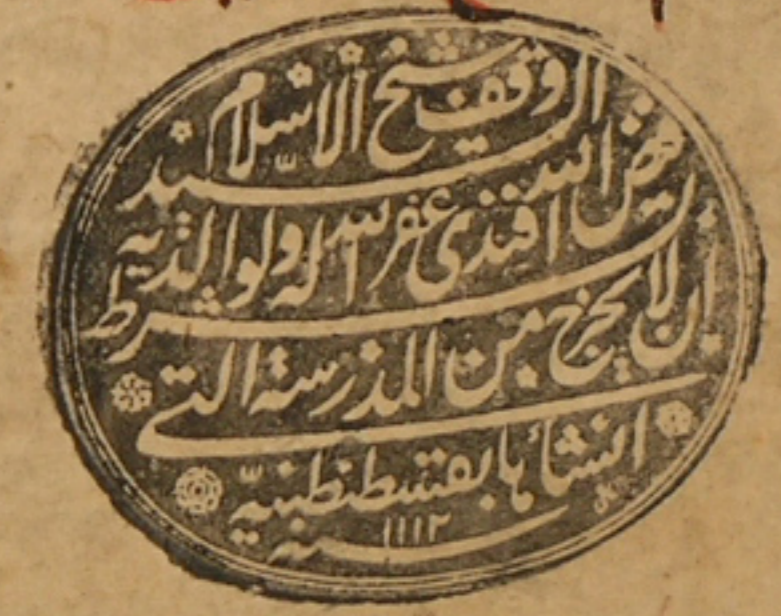 وقف شيخ الاسلام السيد
فيض الله افندى غفر الله له ولوالديه بشرط
ان لا يخرج من المدرسة التى
انشأها بقسطنطنيه
سنه ١١١٢